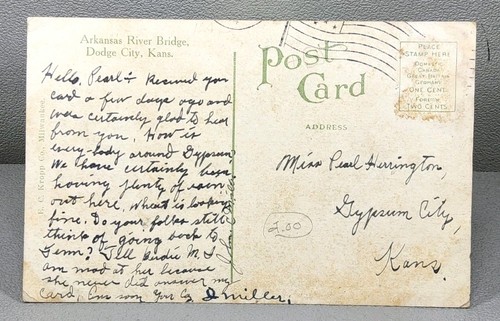 Arkansas River Bridge,
Dodge City, Kans.
Hello, Pearl:- Received your
card a few days ago and
was certainly glad to hear
from you. How is
every-body around Gypsum
We have certainly been
having plenty of rain
out here, wheat is looking
fine. Do your folks still
think of going back to
Tenn? Tell Birdie M. I
am mad at her because
she never did answer my
card,
Miller.
E. C. Kropp Co. Milwaukee.
Post
Card
ADDRESS
PLACE
STAMP HERE
DOMESTIC
CANADA
GREAT BRITAIN
GERMANY
ONE CENT
FOREIGN
TWO CENTS
Miss Pearl Herrington,
Gypsum City,
Kans.
2.00